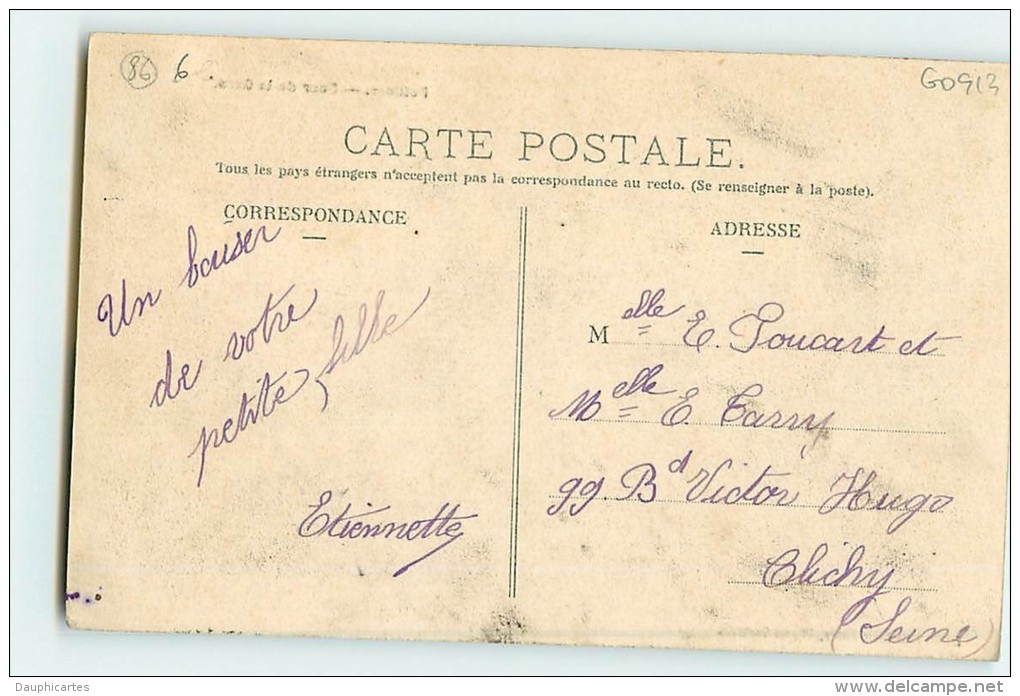 86 6
G0913
CARTE POSTALE.
Tous les pays étrangers n'acceptent pas la correspondance au recto. (Se renseigner à la poste).
CORRESPONDANCE
Un baiser
de votre
petite fille
Etiennette
ADRESSE
Melle E. Foucart et
Melle E. Tarry
99. Bd Victor Hugo
Clichy
(Seine)
Dauphicartes
www.delcampe.net